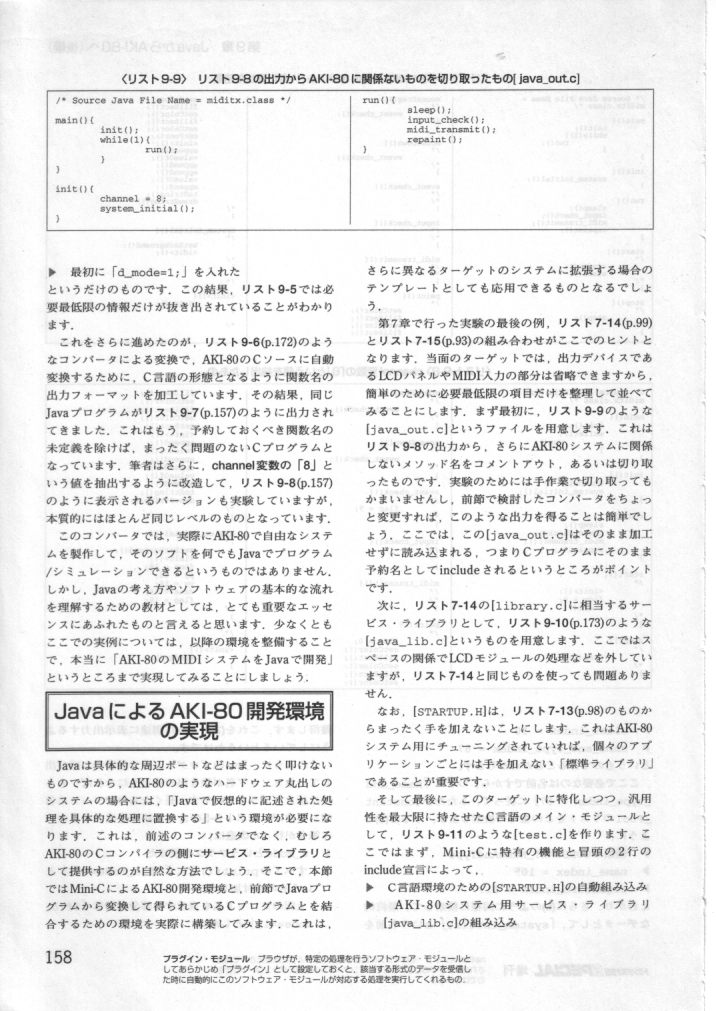 〈リスト9-9〉 リスト9-8の出力からAKI-80に関係ないものを切り取ったもの[java_out.c]
/* Source Java File Name = miditx.class */
main(){
init();
while(1){
run();
}
}
init(){
channel = 8;
system_initial();
}
run(){
sleep();
input_check();
midi_transmit();
repaint();
}
▶ 最初に「d_mode=1;」を入れた
というだけのものです．この結果，リスト9-5では必
要最低限の情報だけが抜き出されていることがわかり
ます．
これをさらに進めたのが，リスト9-6(p.172)のよう
なコンバータによる変換で，AKI-80のCソースに自動
変換するために，C言語の形態となるように関数名の
出力フォーマットを加工しています．その結果，同じ
Javaプログラムがリスト9-7(p.157)のように出力され
てきました．これはもう，予約しておくべき関数名の
未定義を除けば，まったく問題のないCプログラムと
なっています．筆者はさらに，channel変数の「8」と
いう値を抽出するように改造して，リスト9-8(p.157)
のように表示されるバージョンも実験していますが，
本質的にはほとんど同じレベルのものとなっています．
このコンバータでは，実際にAKI-80で自由なシステ
ムを製作して，そのソフトを何でもJavaでプログラム
/シミュレーションできるというものではありません．
しかし，Javaの考え方やソフトウェアの基本的な流れ
を理解するための教材としては，とても重要なエッセ
ンスにあふれたものと言えると思います．少なくとも
ここでの実例については，以降の環境を整備すること
で，本当に「AKI-80のMIDIシステムをJavaで開発」
というところまで実現してみることにしましょう．
JavaによるAKI-80開発環境
の実現
Javaは具体的な周辺ポートなどはまったく叩けない
ものですから，AKI-80のようなハードウェア丸出しの
システムの場合には，「Javaで仮想的に記述された処
理を具体的な処理に置換する」という環境が必要にな
ります．これは，前述のコンバータでなく，むしろ
AKI-80のCコンパイラの側にサービス・ライブラリと
して提供するのが自然な方法でしょう．そこで，本節
ではMini-CによるAKI-80開発環境と，前節でJavaプロ
グラムから変換して得られているCプログラムとを結
合するための環境を実際に構築してみます．これは，
さらに異なるターゲットのシステムに拡張する場合の
テンプレートとしても応用できるものとなるでしょ
う．
第7章で行った実験の最後の例，リスト7-14(p.99)
とリスト7-15(p.93)の組み合わせがここでのヒントと
なります．当面のターゲットでは，出力デバイスであ
るLCDパネルやMIDI入力の部分は省略できますから，
簡単のために必要最低限の項目だけを整理して並べて
みることにします．まず最初に，リスト9-9のような
[java_out.c]というファイルを用意します．これは
リスト9-8の出力から，さらにAKI-80システムに関係
しないメソッド名をコメントアウト，あるいは切り取
ったものです．実験のためには手作業で切り取っても
かまいませんし，前節で検討したコンバータをちょっ
と変更すれば，このような出力を得ることは簡単でし
ょう．ここでは，この[java_out.c]はそのまま加工
せずに読み込まれる，つまりCプログラムにそのまま
予約名としてincludeされるというところがポイント
です．
次に，リスト7-14の[library.c]に相当するサー
ビス・ライブラリとして，リスト9-10(p.173)のような
[java_lib.c]というものを用意します．ここではス
ペースの関係でLCDモジュールの処理などを外してい
ますが，リスト7-14と同じものを使っても問題ありま
せん．
なお，[STARTUP.H]は，リスト7-13(p.98)のものか
らまったく手を加えないことにします．これはAKI-80
システム用にチューニングされていれば，個々のアプ
リケーションごとには手を加えない「標準ライブラリ」
であることが重要です．
そして最後に，このターゲットに特化しつつ，汎用
性を最大限に持たせたC言語のメイン・モジュールと
して，リスト9-11のような[test.c]を作ります．こ
こではまず，Mini-Cに特有の機能と冒頭の2行の
include宣言によって，
▶ C言語環境のための[STARTUP.H]の自動組み込み
▶ AKI-80システム用サービス・ライブラリ
[java_lib.c]の組み込み
158
プラグイン・モジュール ブラウザが，特定の処理を行うソフトウェア・モジュールと
してあらかじめ「プラグイン」として設定しておくと，該当する形式のデータを受信し
た時に自動的にこのソフトウェア・モジュールが対応する処理を実行してくれるもの．